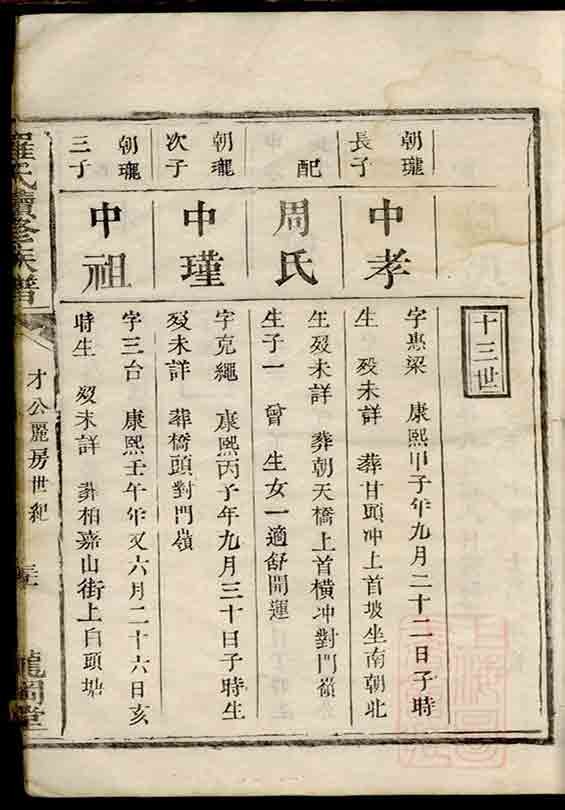 十三世
朝瓏
長子
中孝
字惠梁 康熙甲子年九月二十二日子時
生 歿未詳 葬甘頭冲上首坡坐南朝北
配
周氏
生歿未詳 葬朝天橋上首橫冲對門嶺
生子一 曾 生女一適舒開運
朝瓏
次子
中瑾
字克繩 康熙丙子年九月三十日子時生
歿未詳 葬橋頭對門嶺
朝瓏
三子
中祖
字三台 康熙壬午年又六月二十六日亥
時生 歿未詳 葬柏嘉山街上自頭塘
羅氏續修族譜
才公麗房世紀
龍岡堂